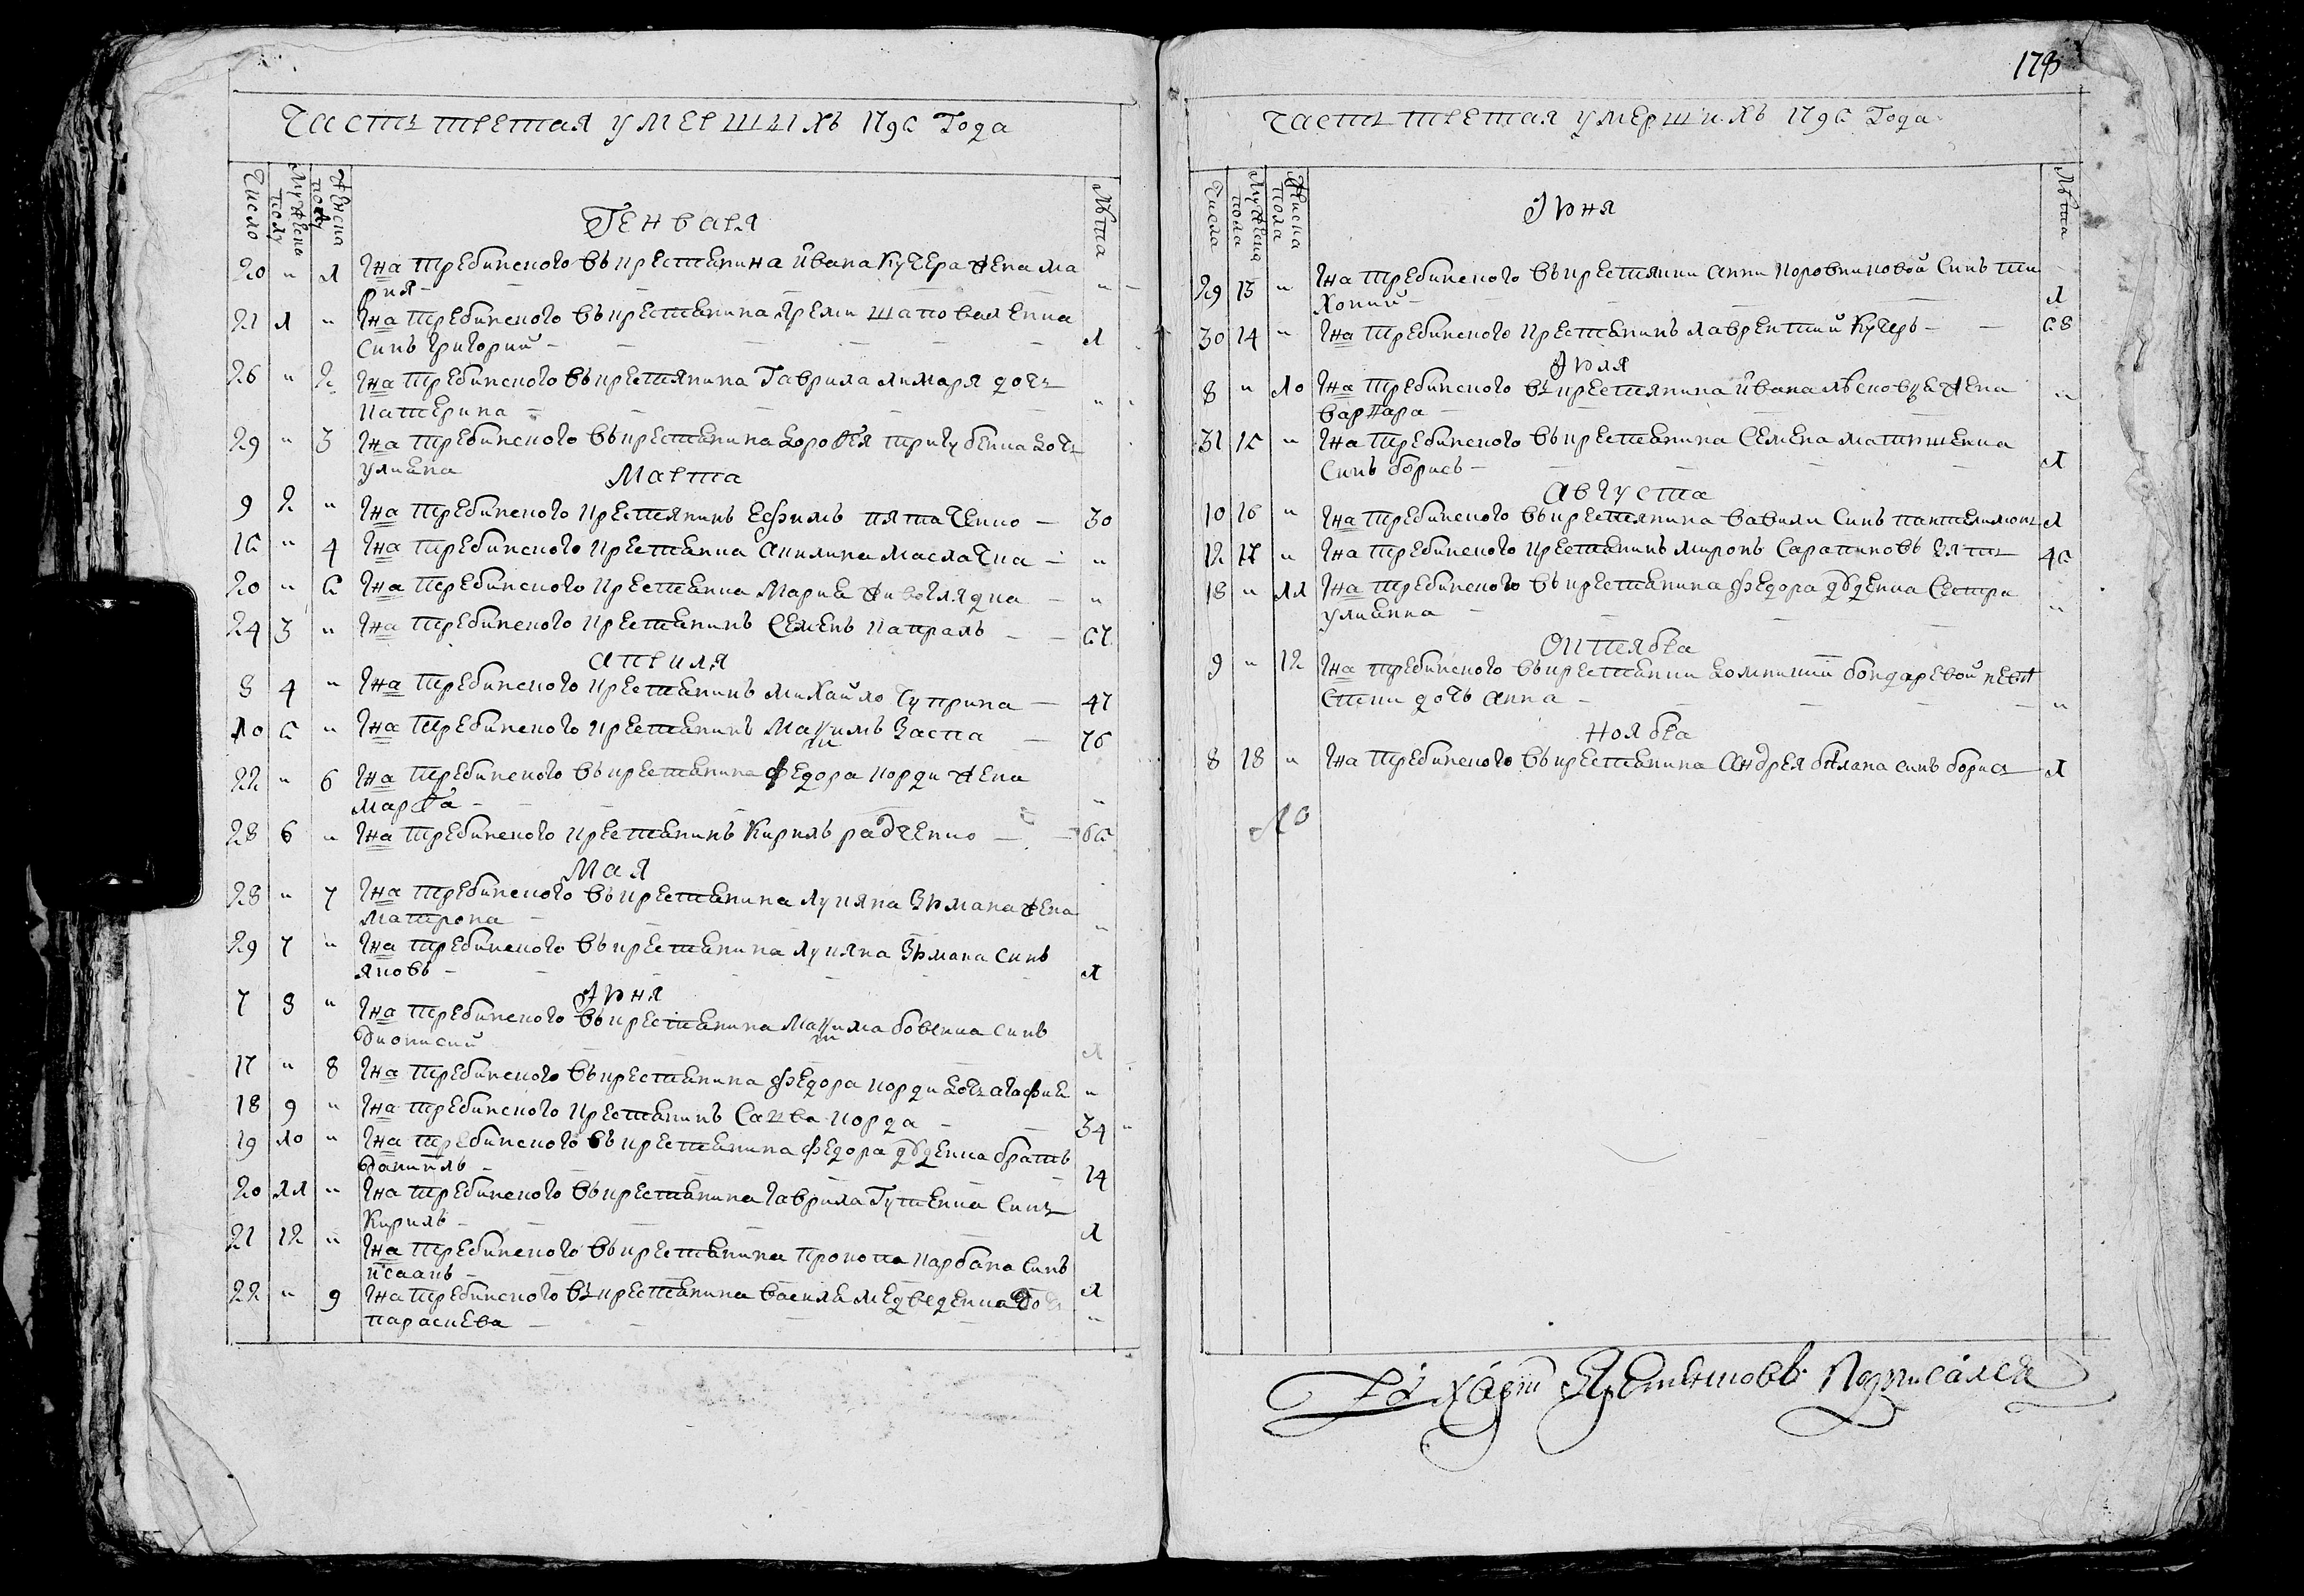 Часть третая умершихъ 1795 Года
Число
Мужеска полу
Женска полу
Лѣта
Генваря
20 " 1 Гна Требинского въ крестянина Ивана Кучера жена Ма
рия - "
21 1 " Гна Требинского въ крестянина Яреми Шаповаленка
синъ Григорий - 1
26 " 2 Гна Требинского въ крестянина Гаврила Лимаря дочь
Катерина - "
29 " 3 Гна Требинского въ крестянина Дорофея Тригубенка дочь
Улияна
Марта
9 2 " Гна Требинского крестянинъ Ефимъ Пяташенко - 30
15 " 4 Гна Требинского крестянка Акилина Маслачка - "
20 " 5 Гна Требинского крестянка Мария Живоглядка - "
24 3 " Гна Требинского крестянинъ Семенъ Капраль - 57
Априля
8 4 " Гна Требинского крестянинъ Михайло Чуприна - 47
10 5 " Гна Требинского крестянинъ Максимъ Заспа - 76
22 " 6 Гна Требинского въ крестянина Федора Корди жена
Марфа - "
28 6 " Гна Требинского крестянинъ Кирилъ Радченко - 65
Мая
28 " 7 Гна Требинского въ крестянина Лукяна Зюмана жена
Матрона - "
29 7 " Гна Требинского въ крестянина Лукяна Зюмана синъ
Яковъ - 1
Июня
7 8 " Гна Требинского въ крестянина Максима Бовенка синъ
Дионисий 1
17 " 8 Гна Требинского въ крестянина Федора Корди дочь Агафия "
18 9 " Гна Требинского крестянинъ Савва Корда - 34
19 10 " Гна Требинского въ крестянина Федора Дбденка братъ
Даниилъ - 14
20 11 " Гна Требинского въ крестянина Гаврила Гутенка синъ
Кирилъ - 1
21 12 " Гна Требинского въ крестянина Прокопа Карбана синъ
Исаакъ - 1
22 " 9 Гна Требинского въ крестянина Василя Медведенка дочь
Параскева - "
178
Часть третая умершихъ 1795 Года
Числа
Мужеска пола
Женска пола
Лѣта
Июня
29 13 " Гна Требинского въ крестянки Анни Коровниковой синъ Ти
хоний - 1
30 14 " Гна Требинского крестянинъ Лаврентий Кучеръ - 58
Июля
8 " 10 Гна Требинского въ крестянина Ивана Лѣсновца жена
Варвара - "
31 15 " Гна Требинского въ крестянина Семена Матюшенка
синъ Борисъ - 1
Августа
10 16 " Гна Требинского въ крестянина Вавили синъ Пантелимонъ 1
12 17 " Гна Требинского крестянинъ Миронъ Сарапиновъ зять 45
18 " 11 Гна Требинского въ крестянина Федора Дбденка сестра
Улиянна - "
Октября
9 " 12 Гна Требинского въ крестянки Домникии Бондаревой невѣ
стки дочь Анна - "
Ноября
8 18 " Гна Требинского въ крестянина Андрея Бѣлана синъ Борисъ 1
30
Подписался